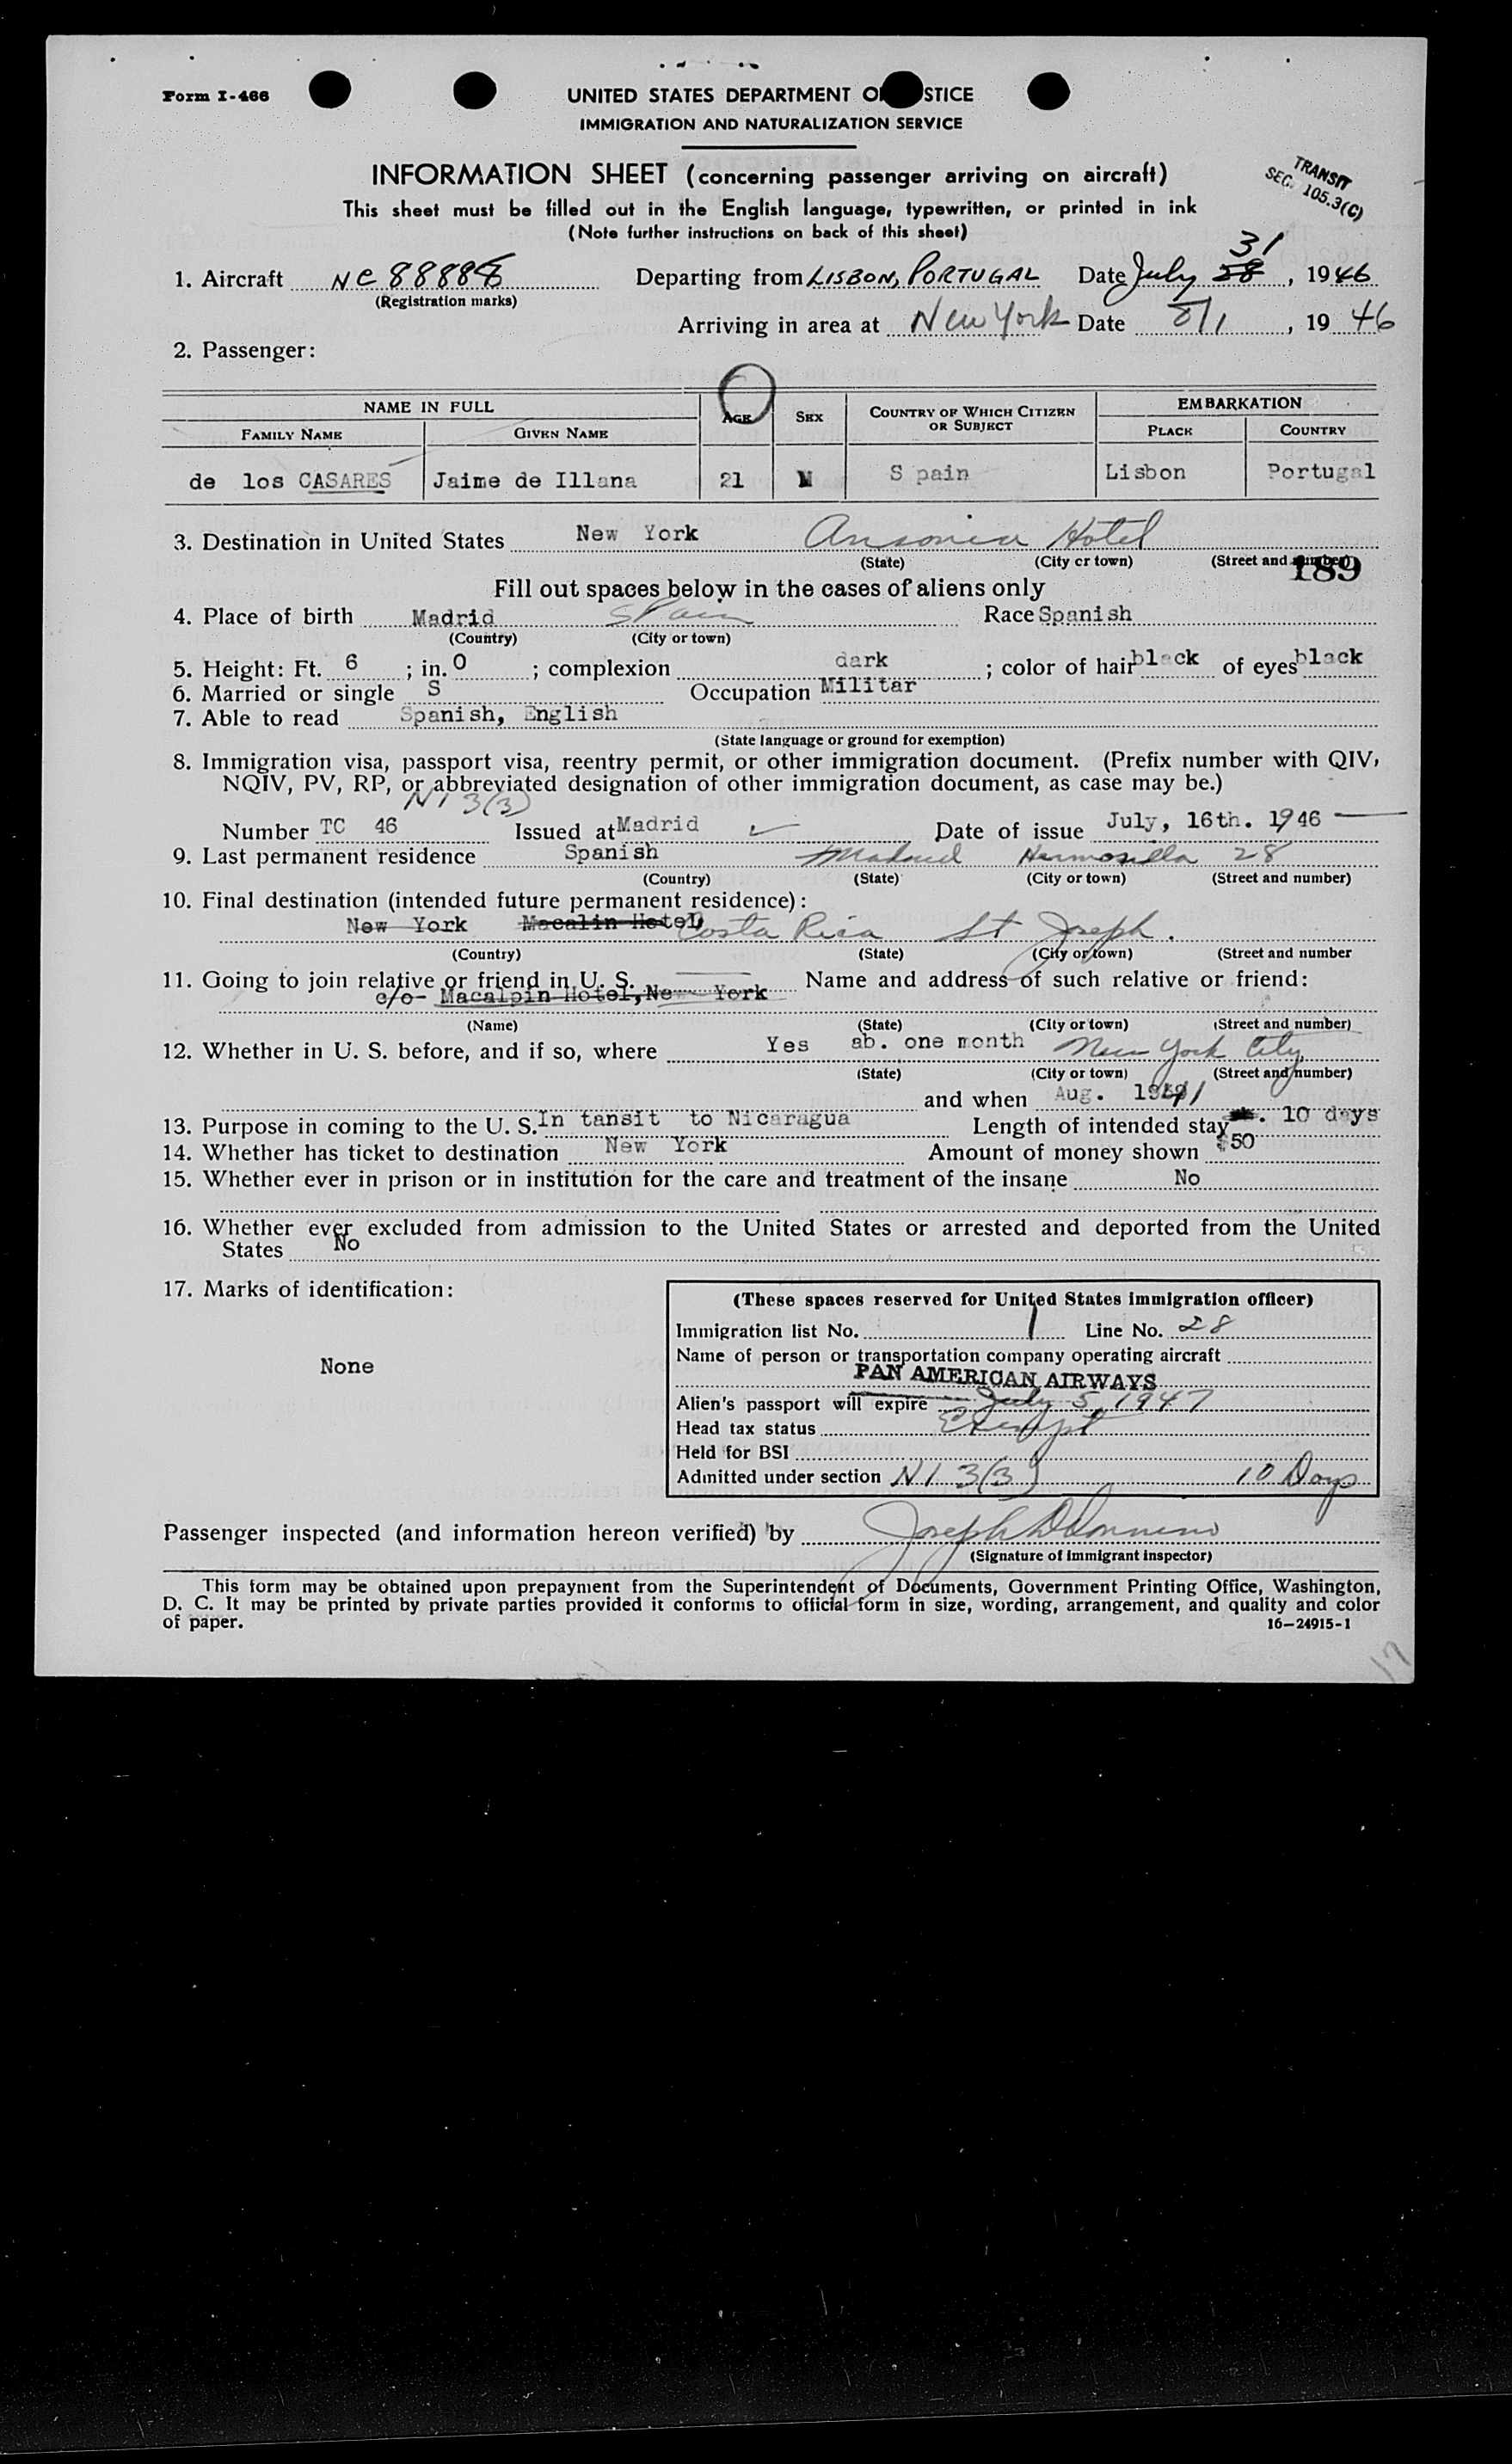 Form I-466
UNITED STATES DEPARTMENT O STICE
IMMIGRATION AND NATURALIZATION SERVICE
INFORMATION SHEET (concerning passenger arriving on aircraft)
TRANSIT
SEC. 105.3(C)
This sheet must be filled out in the English language, typewritten, or printed in ink
(Note further instructions on back of this sheet)
31
1. Aircraft NC 88888 Departing from LISBON, PORTUGAL Date July 28, 1946
(Registration marks)
Arriving in area at New York Date 8/1, 19 46
2. Passenger:
NAME IN FULL AGE SEX COUNTRY OF WHICH CITIZEN OR SUBJECT EMBARKATION
FAMILY NAME GIVEN NAME PLACE COUNTRY
de los CASARES Jaime de Illana 21 M S pain Lisbon Portugal
3. Destination in United States New York Ansonia Hotel
(State) (City or town) (Street and number)
189
Fill out spaces below in the cases of aliens only
4. Place of birth Madrid Spain Race Spanish
(Country) (City or town)
5. Height: Ft. 6 ; in. 0 ; complexion dark ; color of hair black of eyes black
6. Married or single S Occupation Militar
7. Able to read Spanish, English
(State language or ground for exemption)
8. Immigration visa, passport visa, reentry permit, or other immigration document. (Prefix number with QIV,
NQIV, PV, RP, or abbreviated designation of other immigration document, as case may be.)
NI 3(3)
Number TC 46 Issued at Madrid Date of issue July, 16th. 1946
9. Last permanent residence Spanish Madrid Hermosilla 28
(Country) (State) (City or town) (Street and number)
10. Final destination (intended future permanent residence):
New York Macalin Hotel, Costa Rica St Joseph.
(Country) (State) (City or town) (Street and number
11. Going to join relative or friend in U. S. Name and address of such relative or friend:
c/o- Macalpin Hotel, New York
(Name) (State) (City or town) (Street and number)
12. Whether in U. S. before, and if so, where Yes ab. one month New York City
(State) (City or town) (Street and number)
and when Aug. 1941
13. Purpose in coming to the U. S. In tansit to Nicaragua Length of intended stay . 10 days
14. Whether has ticket to destination New York Amount of money shown $50
15. Whether ever in prison or in institution for the care and treatment of the insane No
16. Whether ever excluded from admission to the United States or arrested and deported from the United
States No
17. Marks of identification:
None
(These spaces reserved for United States immigration officer)
Immigration list No. 1 Line No. 28
Name of person or transportation company operating aircraft
PAN AMERICAN AIRWAYS
Alien's passport will expire July 5, 1947
Head tax status Exempt
Held for BSI
Admitted under section NI 3(3) 10 Days
Passenger inspected (and information hereon verified) by Joseph
(Signature of immigrant inspector)
This form may be obtained upon prepayment from the Superintendent of Documents, Government Printing Office, Washington,
D. C. It may be printed by private parties provided it conforms to official form in size, wording, arrangement, and quality and color
of paper.
16—24915-1
17